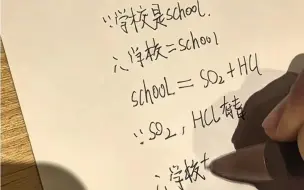 ∵学校是school.
∴学校=school
school=SO₂+HCl
∵SO₂,HCl有毒
∴学校